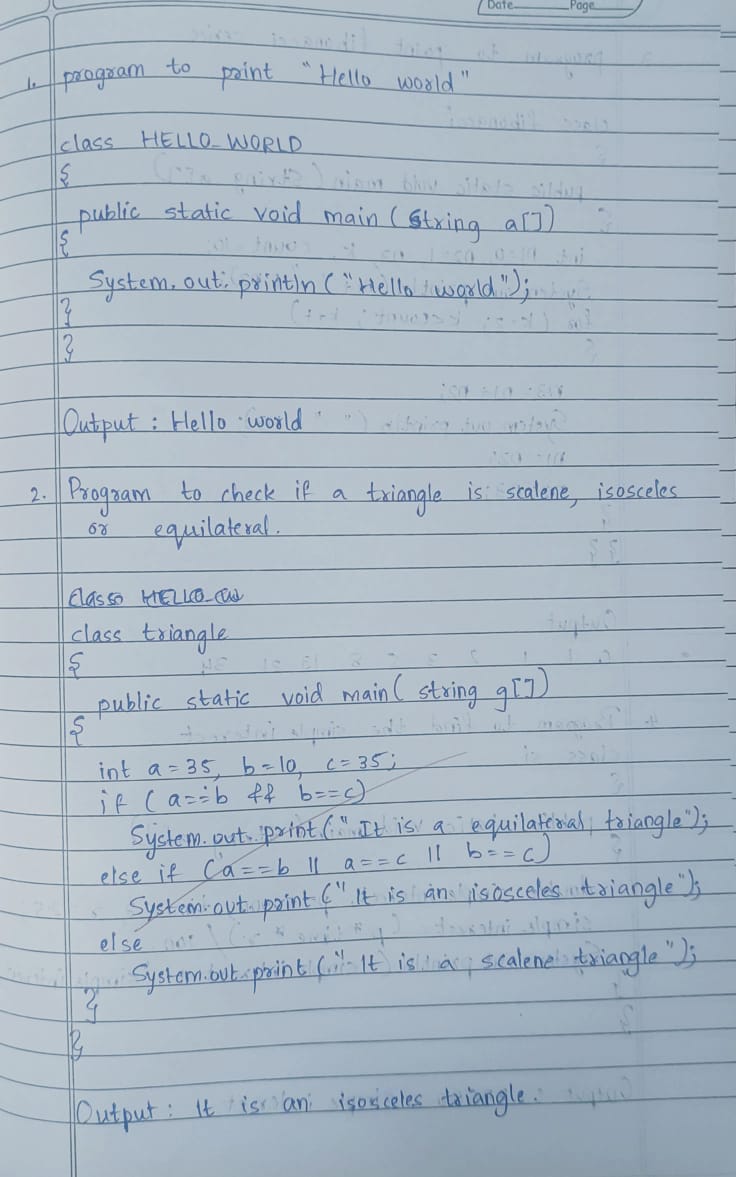 Date Page
1. program to print "Hello world"
class HELLO_WORLD
{
public static void main (String a[])
{
System.out.println ("Hello world");
}
}
Output : Hello world
2. Program to check if a triangle is scalene, isosceles
or equilateral.
class triangle
{
public static void main( string g[])
{
int a = 35, b = 10, c = 35;
if ( a==b && b==c)
System.out.print (" It is a equilateral triangle");
else if (a==b || a==c || b==c)
System.out.print (" It is an isosceles triangle");
else
System.out.print (" It is a scalene triangle");
}
}
Output : It is an isosceles triangle.